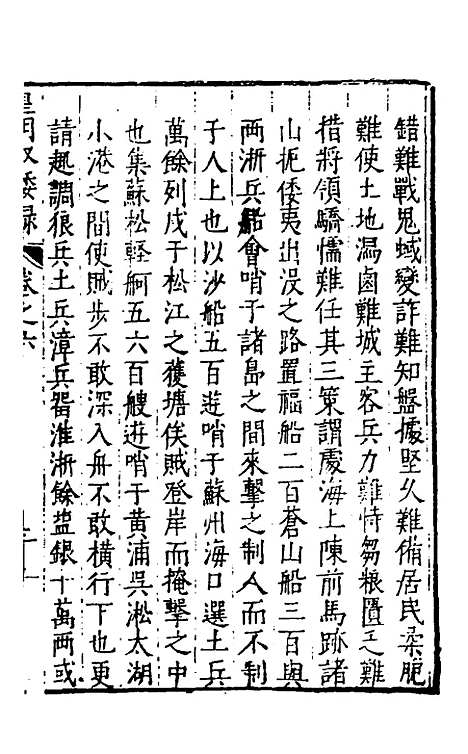 錯難戰鬼蜮變詐難知盤據堅久難備居民柔脆
難使土地漏鹵難城主客兵力難恃芻粮匱乏難
措將領驕懦難任其三策謂處海上陳前馬跡諸
山扼倭夷出沒之路置福船二百蒼山船三百與
兩淅兵船會哨于諸島之間來擊之制人而不制
于人上也以沙船五百遊哨于蘇州海口選土兵
萬餘列戍于松江之獲塘俟賊登岸而掩擊之中
也集蘇松輕舸五六百艘遊哨于黃浦吳淞太湖
小港之間使賊步不敢深入舟不敢橫行下也更
請趣調狼兵土兵漳兵畱淮淅餘盐銀十萬两或
皇明馭倭録 卷之六